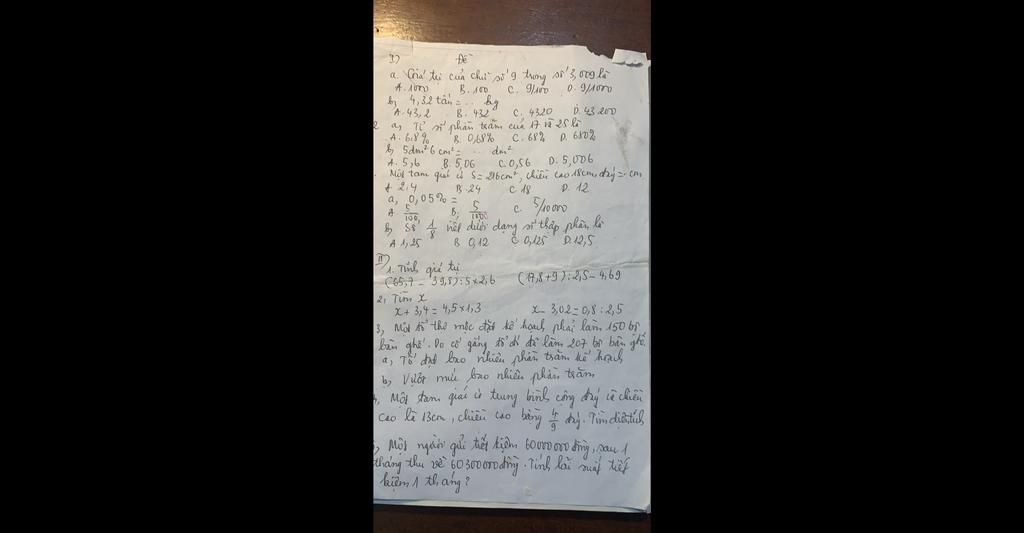 I) Đề
a. Giá trị của chữ số 9 trong số 3,009 là
A. 1000 B. 100 C. 9/100 D. 9/1000
b, 4,32 tấn = ... kg
A. 43,2 B. 432 C. 4320 D. 43200
2 a, Tỉ số phần trăm của 17 và 25 là
A. 6,8% B. 0,68% C. 68% D. 680%
b, 5dm² 6cm² = ... dm²
A. 5,6 B. 5,06 C. 0,56 D. 5,006
Một tam giác có S = 216cm², chiều cao 18cm, đáy = cm
A 2,4 B. 24 C 18 D. 12
a, 0,05% =
A 5/100 B, 5/1000 C. 5/10000
b, Số 1/8 viết dưới dạng số thập phân là
A 1,25 B 0,12 C 0,125 D. 12,5
II) 1. Tính giá trị
(65,7 - 39,8) : 5 x 2,6 (17,8 + 9) : 2,5 - 4,69
2, Tìm x
x + 3,4 = 4,5 x 1,3 x - 3,02 = 0,8 : 2,5
3, Một tổ thợ mộc đặt kế hoạch phải làm 150 bộ
bàn ghế. Do cố gắng tổ đó đã làm 207 bộ bàn ghế.
a, Tổ đạt bao nhiêu phần trăm kế hoạch
b, Vượt mức bao nhiêu phần trăm
4, Một tam giác có trung bình cộng đáy và chiều
cao là 13cm, chiều cao bằng 4/9 đáy. Tìm diện tích
5, Một người gửi tiết kiệm 60000000 đồng, sau 1
tháng thu về 60300000 đồng. Tính lãi suất tiết
kiệm 1 tháng?